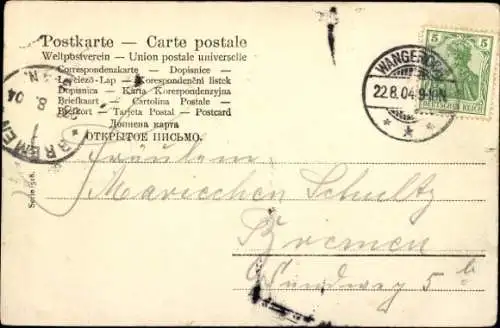 Postkarte — Carte postale
Weltpostverein — Union postale universelle
Correspondenzkarte — Dopisnice —
Levelező-Lap — Korespondenční listek
Dopisnica — Karta Korespondenzyjna
Briefkaart — Cartolina Postale —
Brefkort — Tarjeta Postal — Postcard
Дописна карта
ОТКРЫТОЕ ПИСЬМО.
5 5
DEUTSCHES REICH
WANGEROOG
22.8.04.9-10N.
* * *
BREMEN
8. 04
Serie 518.
Fräulein
Mariechen Schultz
Bremen
5 b